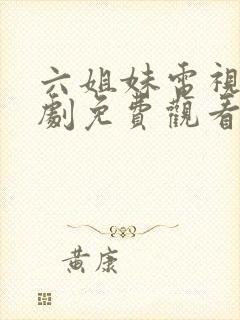 六姐妹電視
劇免費觀看
黃康